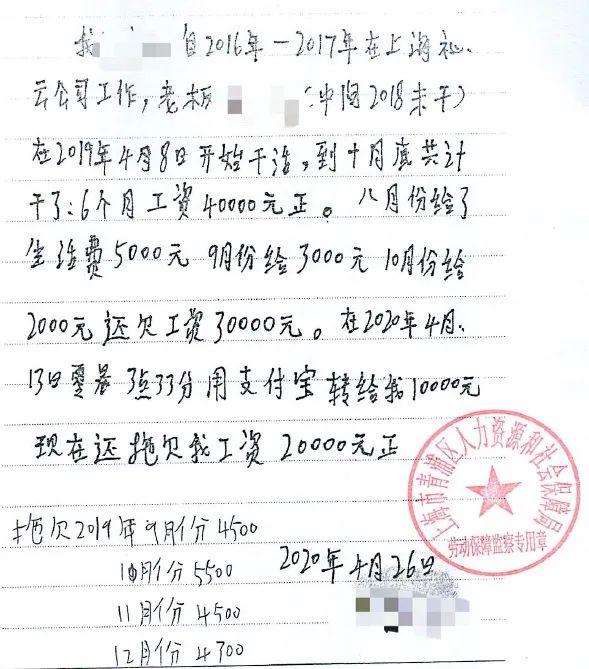 我 自2016年-2017年在上海祉
云公司工作，老板 （中间2018未干）
在2019年4月8日开始干活，到十月底共计
干了:6个月工资40000元正。八月份给了
生活费5000元 9月份给3000元 10月份给
2000元还欠工资30000元。在2020年4月
13日凌晨3点33分用支付宝转给我10000元
现在还拖欠我工资20000元正
拖欠2019年9月份4500
10月份5500
11月份4500
12月份4300
2020年4月26日
上海市青浦区人力资源和社会保障局
劳动保障监察专用章